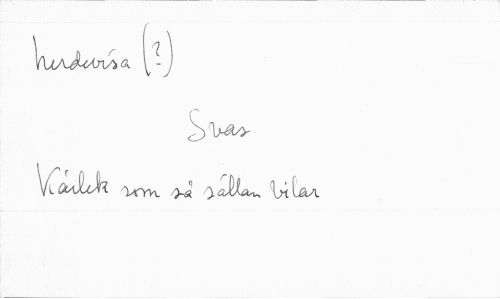 herdevisa (?)
Svas
Kärlek som så sällan vilar